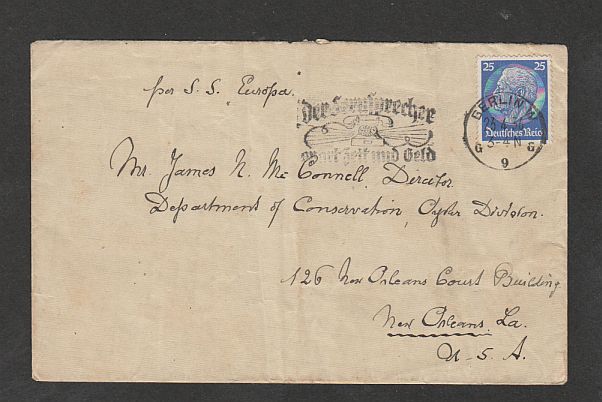 25 25
Deutsches Reich
BERLIN W
3-4 N
G G
9
per S. S. "Europa"
Der Fernsprecher
spart Zeit und Geld
Mr. James N. McConnell, Director
Department of Conservation, Oyster Division.
126 New Orleans Court Building
New Orleans, La.
U. S. A.